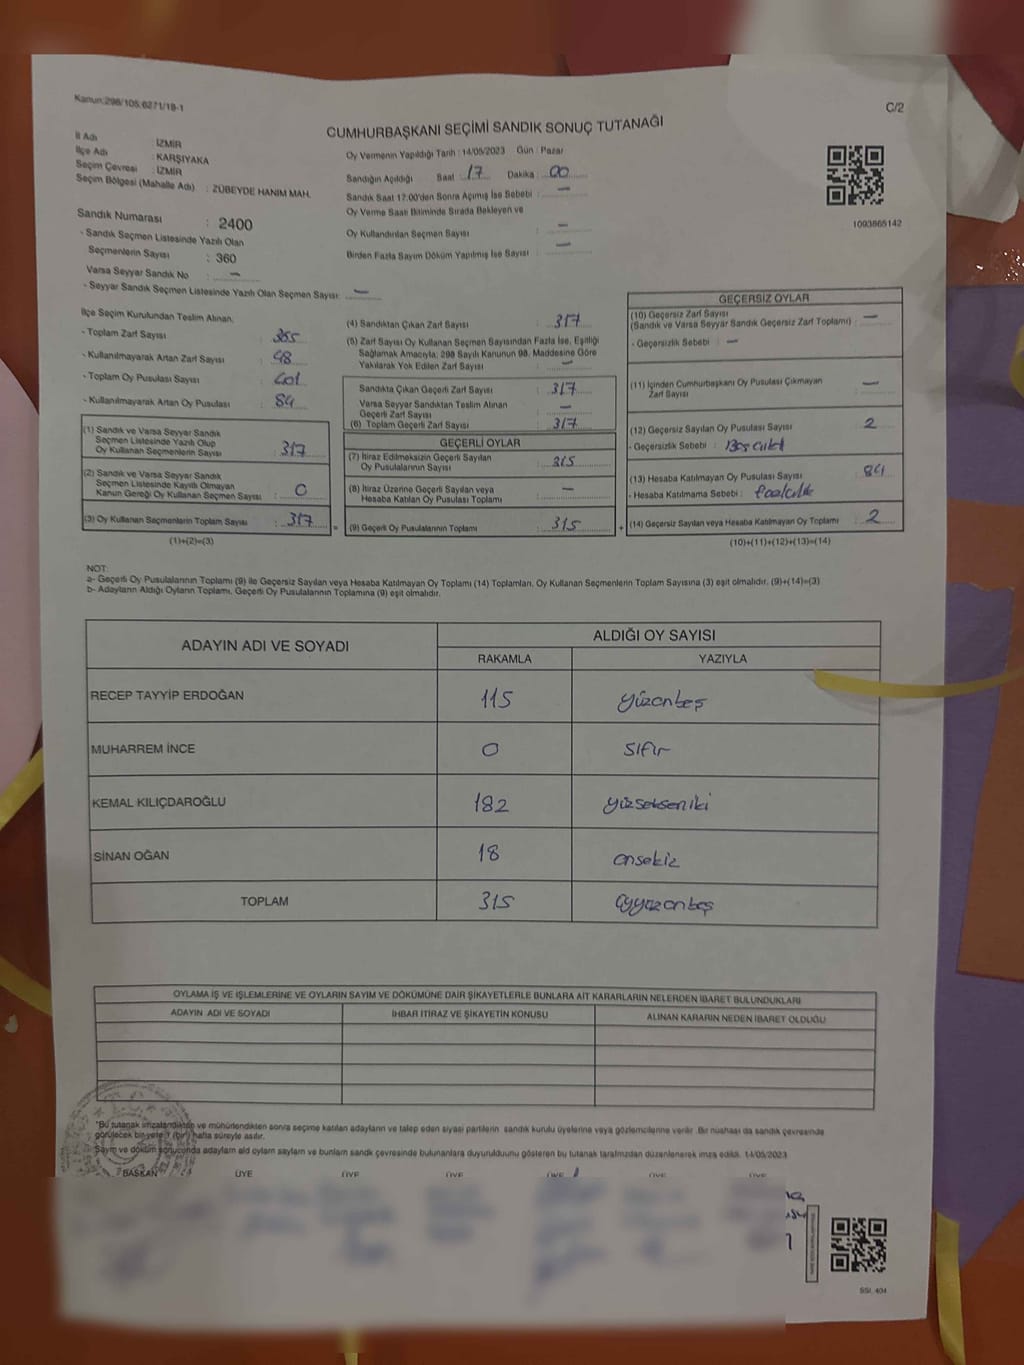 Kanun:298/105;6271/18-1
C/2
CUMHURBAŞKANI SEÇİMİ SANDIK SONUÇ TUTANAĞI
İl Adı : İZMİR
İlçe Adı : KARŞIYAKA
Seçim Çevresi : İZMİR
Seçim Bölgesi (Mahalle Adı) : ZÜBEYDE HANIM MAH.
Sandık Numarası : 2400
- Sandık Seçmen Listesinde Yazılı Olan
Seçmenlerin Sayısı : 360
Varsa Seyyar Sandık No : —
- Seyyar Sandık Seçmen Listesinde Yazılı Olan Seçmen Sayısı: —
Oy Vermenin Yapıldığı Tarih : 14/05/2023 Gün : Pazar
Sandığın Açıldığı Saat : 17 Dakika : 00
Sandık Saat 17.00'den Sonra Açımış İse Sebebi : —
Oy Verme Saati Bitiminde Sırada Bekleyen ve
Oy Kullandırılan Seçmen Sayısı : —
Birden Fazla Sayım Döküm Yapılmış İse Sayısı : —
1093865142
İlçe Seçim Kurulundan Teslim Alınan:
- Toplam Zarf Sayısı : 365
- Kullanılmayarak Artan Zarf Sayısı : 48
- Toplam Oy Pusulası Sayısı : 401
- Kullanılmayarak Artan Oy Pusulası : 84
(1) Sandık ve Varsa Seyyar Sandık
Seçmen Listesinde Yazılı Olup
Oy Kullanan Seçmenlerin Sayısı : 317
(2) Sandık ve Varsa Seyyar Sandık
Seçmen Listesinde Kayıtlı Olmayan
Kanun Gereği Oy Kullanan Seçmen Sayısı : 0
(3) Oy Kullanan Seçmenlerin Toplam Sayısı : 317
(1)+(2)=(3)
(4) Sandıktan Çıkan Zarf Sayısı : 317
(5) Zarf Sayısı Oy Kullanan Seçmen Sayısından Fazla İse, Eşitliği
Sağlamak Amacıyla, 298 Sayılı Kanunun 98. Maddesine Göre
Yakılarak Yok Edilen Zarf Sayısı : —
Sandıkta Çıkan Geçerli Zarf Sayısı : 317
Varsa Seyyar Sandıktan Teslim Alınan
Geçerli Zarf Sayısı : —
(6) Toplam Geçerli Zarf Sayısı : 317
GEÇERLİ OYLAR
(7) İtiraz Edilmeksizin Geçerli Sayılan
Oy Pusulalarının Sayısı : 315
(8) İtiraz Üzerine Geçerli Sayılan veya
Hesaba Katılan Oy Pusulası Toplamı : —
(9) Geçerli Oy Pusulalarının Toplamı : 315
GEÇERSİZ OYLAR
(10) Geçersiz Zarf Sayısı
(Sandık ve Varsa Seyyar Sandık Geçersiz Zarf Toplamı) : —
- Geçersizlik Sebebi : —
(11) İçinden Cumhurbaşkanı Oy Pusulası Çıkmayan
Zarf Sayısı : —
(12) Geçersiz Sayılan Oy Pusulası Sayısı : 2
- Geçersizlik Sebebi :
(13) Hesaba Katılmayan Oy Pusulası Sayısı : 84
- Hesaba Katılmama Sebebi :
(14) Geçersiz Sayılan veya Hesaba Katılmayan Oy Toplamı : 2
(10)+(11)+(12)+(13)=(14)
NOT:
a- Geçerli Oy Pusulalarının Toplamı (9) ile Geçersiz Sayılan veya Hesaba Katılmayan Oy Toplamı (14) Toplamları, Oy Kullanan Seçmenlerin Toplam Sayısına (3) eşit olmalıdır. (9)+(14)=(3)
b- Adayların Aldığı Oyların Toplamı, Geçerli Oy Pusulalarının Toplamına (9) eşit olmalıdır.
ADAYIN ADI VE SOYADI ALDIĞI OY SAYISI
RAKAMLA YAZIYLA
RECEP TAYYİP ERDOĞAN 115 yüzonbeş
MUHARREM İNCE 0 sıfır
KEMAL KILIÇDAROĞLU 182 yüzsekseniki
SİNAN OĞAN 18 onsekiz
TOPLAM 315 üçyüzonbeş
OYLAMA İŞ VE İŞLEMLERİNE VE OYLARIN SAYIM VE DÖKÜMÜNE DAİR ŞİKAYETLERLE BUNLARA AİT KARARLARIN NELERDEN İBARET BULUNDUKLARI
ADAYIN ADI VE SOYADI İHBAR İTİRAZ VE ŞİKAYETİN KONUSU ALINAN KARARIN NEDEN İBARET OLDUĞU
"Bu tutanak imzalandıktan ve mühürlendikten sonra seçime katılan adayların ve talep eden siyasi partilerin sandık kurulu üyelerine veya gözlemcilerine verilir. Bir nüshası da sandık çevresinde
görülecek bir yere 1 (bir) hafta süreyle asılır.
Sayım ve döküm sonucunda adayların aldı oyların sayıların ve bunların sandık çevresinde bulunanlara duyurulduunu gösteren bu tutanak tarafımızdan düzenlenerek imza edildi. 14/05/2023
BAŞKAN ÜYE ÜYE ÜYE ÜYE ÜYE ÜYE
SSI. 404